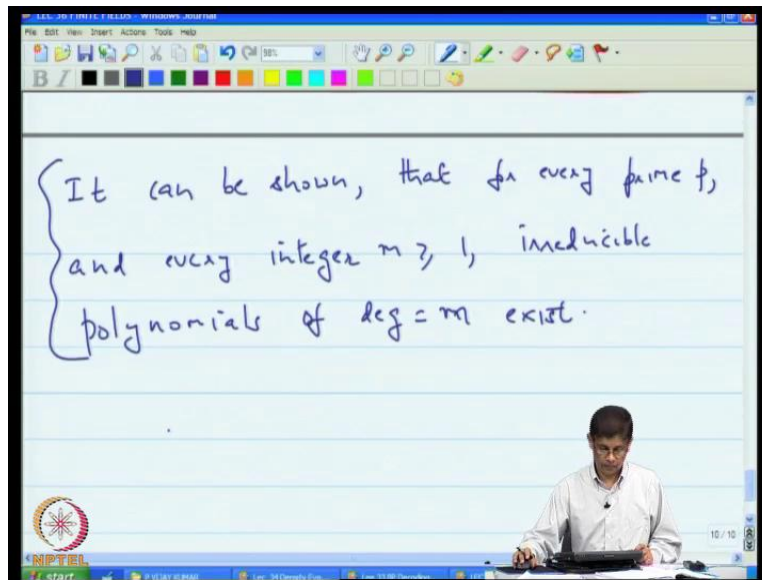 LEC 36 FINITE FIELDS - Windows Journal
File Edit View Insert Actions Tools Help
98%
B I
It can be shown, that for every prime p,
and every integer m ≥ 1, irreducible
polynomials of deg = m exist.
10 / 10
NPTEL
start
P VIJAY KUMAR